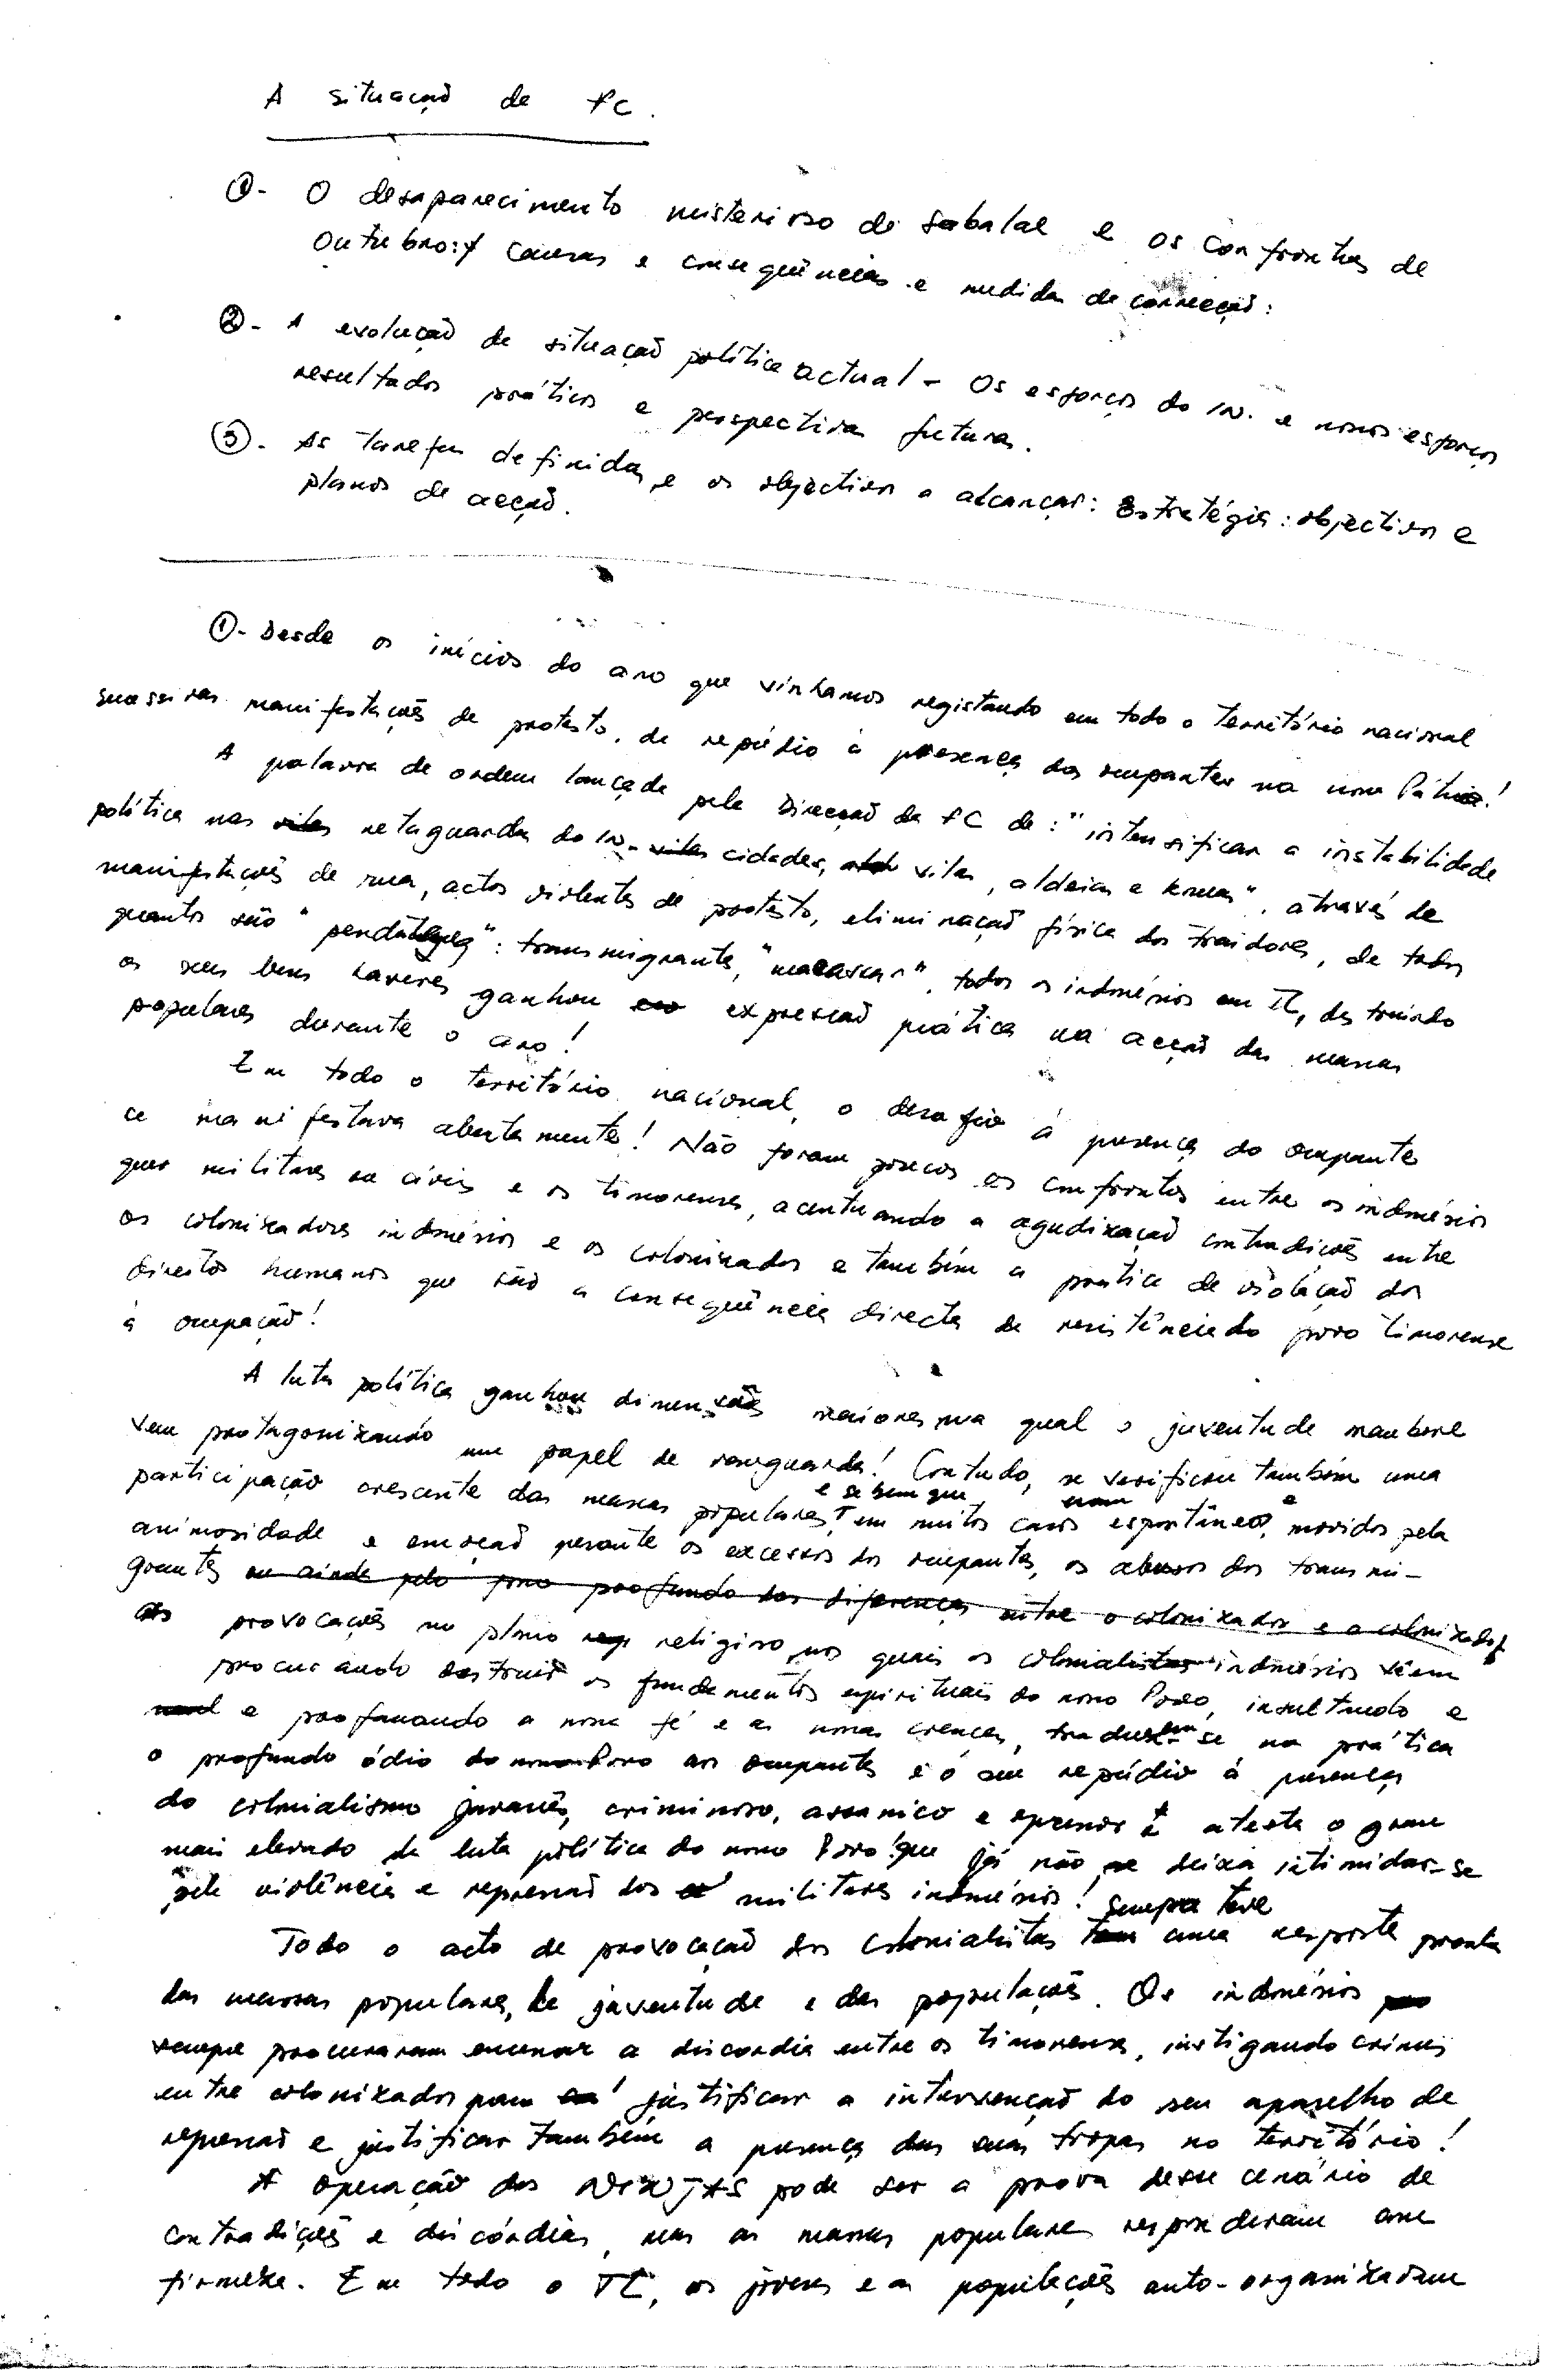 A situação de FC.
①- O desaparecimento misterioso de Sabalae e os confrontos de
Outubro: causas e consequências e medidas de correcção:
②- A evolução de situação política actual - Os esforços do IN. e nossos esforços
resultados práticos e perspectivas futuras.
③- As tarefas definidas, e os objectivos a alcançar: Estratégia: objectivos e
planos de acção.
①- Desde os inícios do ano que vínhamos registando em todo o território nacional
sucessivas manifestações de protesto, de repúdio à presença dos ocupantes na nossa Pátria!
A palavra de ordem lançada pela Direcção da FC de: "intensificar a instabilidade
política nas retaguardas do IN - cidades, vilas, aldeias e knuas", através de
manifestações de rua, actos violentos de protesto, eliminação física dos traidores, de todos
quantos são : transmigrantes, "macassar", todos os indonésios em TL, destruindo
os seus bens haveres ganhou expressão prática na acção das massas
populares durante o ano!
Em todo o território nacional, o desafio à presença do ocupante
se manifestava abertamente! Não foram poucos os confrontos entre os indonésios
quer militares ou civis e os timorenses, acentuando a agudização contradições entre
os colonizadores indonésios e os colonizados e também a prática de violação dos
direitos humanos que são a consequência directa da resistência do povo timorense
à ocupação!
A luta política ganhou dimensões maiores na qual o juventude maubere
vem protagonizando um papel de vanguarda! Contudo, se verificou também uma
participação crescente das massas populares, e se bem que em muitos casos eram espontâneos, e movidos pela
animosidade e emoção perante os excessos dos ocupantes, os abusos dos transmi-
grantes ou ainda pelo fosso profundo das diferenças entre o colonizador e o colonizado,
as provocações no plano religioso, nos quais os colonialistas indonésios vêem
procurando destruir os fundamentos espirituais do nosso Povo, insultando e
e profanando a nossa fé e as nossas crenças, traduzem-se na prática
o profundo ódio do nosso Povo aos ocupantes e o seu repúdio à presença
do colonialismo javanês, criminoso, assassino e opressor e atesta o grau
mais elevado da luta política do nosso Povo! que já não se deixa intimidar-se
pela violência e repressão dos militares indonésios!
Todo o acto de provocação dos colonialistas sempre teve uma resposta pronta
das massas populares, da juventude e das populações. Os indonésios
sempre procuraram encenar a discordia entre os timorenses, instigando crimes
entre colonizados para justificar a intervenção do seu aparelho de
repressão e justificar também a presença das suas tropas no território!
A operação dos NINJAS pode ser a prova desse cenário de
contradições e discórdias, mas as massas populares responderam com
firmeza. Em todo o TL, os jovens e as populações auto-organizaram